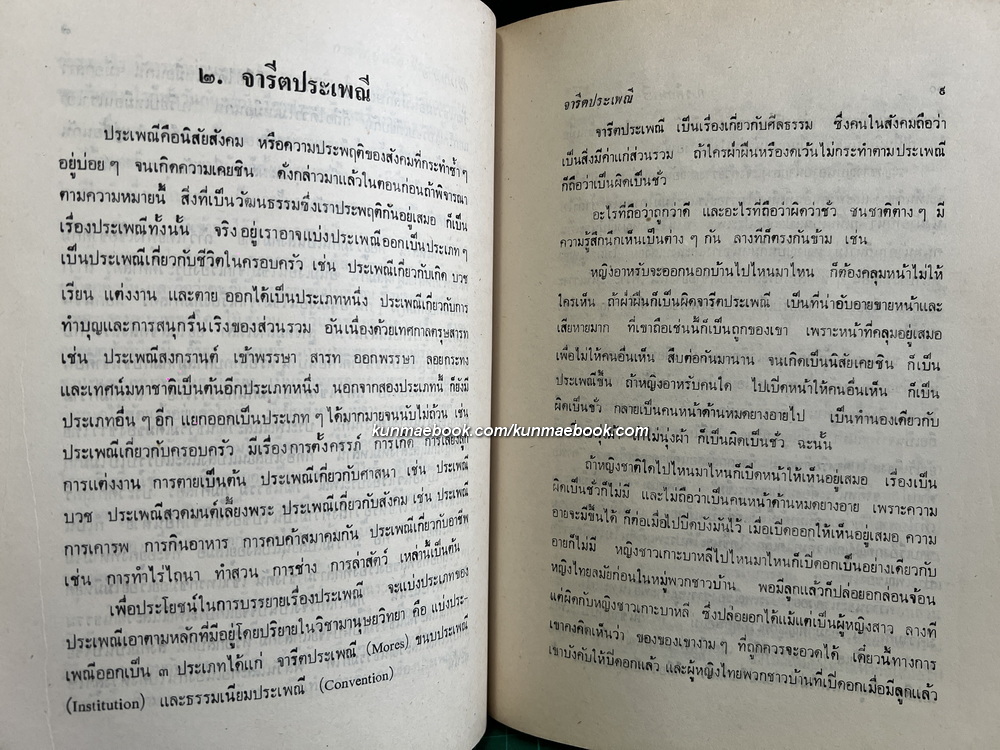 ๒. จารีตประเพณี
ประเพณีคือนิสัยสังคม หรือความประพฤติของสังคมที่กระทำซ้ำๆ
อยู่บ่อยๆ จนเกิดความเคยชิน ดังกล่าวมาแล้วในตอนก่อนถ้าพิจารณา
ตามความหมายนี้ สิ่งที่เป็นวัฒนธรรมซึ่งเราประพฤติกันอยู่เสมอ ก็เป็น
เรื่องประเพณีทั้งนั้น จริงอยู่เราอาจแบ่งประเพณีออกเป็นประเภทๆ
เป็นประเพณีเกี่ยวกับชีวิตในครอบครัว เช่น ประเพณีเกี่ยวกับเกิด บวช
เรียน แต่งงาน และตาย ออกได้เป็นประเภทหนึ่ง ประเพณีเกี่ยวกับการ
ทำบุญและการสนุกรื่นเริงของส่วนรวม อันเนื่องด้วยเทศกาลตรุษสารท
เช่น ประเพณีสงกรานต์ เข้าพรรษา สารท ออกพรรษา ลอยกระทง
และเทศน์มหาชาติเป็นต้นอีกประเภทหนึ่ง นอกจากสองประเภทนี้ ก็ยังมี
ประเภทอื่นๆ อีก แยกออกเป็นประเภทๆ ได้มากมายจนนับไม่ถ้วน เช่น
ประเพณีเกี่ยวกับครอบครัว มีเรื่องการตั้งครรภ์ การเกิด การเลี้ยงลูก
การแต่งงาน การตายเป็นต้น ประเพณีเกี่ยวกับศาสนา เช่น ประเพณี
บวช ประเพณีสวดมนต์เลี้ยงพระ ประเพณีเกี่ยวกับสังคม เช่น ประเพณี
การเคารพ การกินอาหาร การคบค้าสมาคมกัน ประเพณีเกี่ยวกับอาชีพ
เช่น การทำไร่ไถนา ทำสวน การช่าง การล่าสัตว์ เหล่านี้เป็นต้น
เพื่อประโยชน์ในการบรรยายเรื่องประเพณี จะแบ่งประเภทของ
ประเพณีเอาตามหลักที่มีอยู่โดยปริยายในวิชามานุษยวิทยา คือ แบ่งประ-
เพณีออกเป็น ๓ ประเภทได้แก่ จารีตประเพณี (Mores) ขนบประเพณี
(Institution) และธรรมเนียมประเพณี (Convention)
จารีตประเพณี ๙
จารีตประเพณี เป็นเรื่องเกี่ยวกับศีลธรรม ซึ่งคนในสังคมถือว่า
เป็นสิ่งมีค่าแก่ส่วนรวม ถ้าใครฝ่าฝืนหรืองดเว้นไม่กระทำตามประเพณี
ก็ถือว่าเป็นผิดเป็นชั่ว
อะไรที่ถือว่าถูกว่าดี และอะไรที่ถือว่าผิดว่าชั่ว ชนชาติต่างๆ มี
ความรู้สึกนึกเห็นเป็นต่างๆ กัน ลางทีก็ตรงกันข้าม เช่น
หญิงอาหรับจะออกนอกบ้านไปไหนมาไหน ก็ต้องคลุมหน้าไม่ให้
ใครเห็น ถ้าฝ่าฝืนก็เป็นผิดจารีตประเพณี เป็นที่น่าอับอายขายหน้าและ
เสียหายมาก ที่เขาถือเช่นนี้ก็เป็นถูกของเขา เพราะหน้าที่คลุมอยู่เสมอ
เพื่อไม่ให้คนอื่นเห็น สืบต่อกันมานาน จนเกิดเป็นนิสัยเคยชิน ก็เป็น
ประเพณีขึ้น ถ้าหญิงอาหรับคนใด ไปเปิดหน้าให้คนอื่นเห็น ก็เป็น
ผิดเป็นชั่ว กลายเป็นคนหน้าด้านหมดยางอายไป เป็นทำนองเดียวกับ
kunmaebook.com/kunmaebook.com
ไม่นุ่งผ้า ก็เป็นผิดเป็นชั่ว ฉะนั้น
ถ้าหญิงชาติใดไปไหนมาไหนก็เปิดหน้าให้เห็นอยู่เสมอ เรื่องเป็น
ผิดเป็นชั่วก็ไม่มี และไม่ถือว่าเป็นคนหน้าด้านหมดยางอาย เพราะความ
อายจะมีขึ้นได้ ก็ต่อเมื่อไปปิดบังมันไว้ เมื่อเปิดออกให้เห็นอยู่เสมอ ความ
อายก็ไม่มี หญิงชาวเกาะบาหลีไปไหนมาไหนก็เปิดอกเป็นอย่างเดียวกับ
หญิงไทยสมัยก่อนในหมู่พวกชาวบ้าน พอมีลูกแล้วก็ปล่อยอกล่อนจ้อน
แต่ผิดกับหญิงชาวเกาะบาหลี ซึ่งปล่อยอกได้แม้แต่เป็นผู้หญิงสาว ลางที
เขาคงคิดเห็นว่า ของของเขางามๆ ที่ถูกควรจะอวดได้ เดี๋ยวนี้ทางการ
เขาบังคับให้ปิดอกแล้ว และผู้หญิงไทยพวกชาวบ้านที่เปิดอกเมื่อมีลูกแล้ว